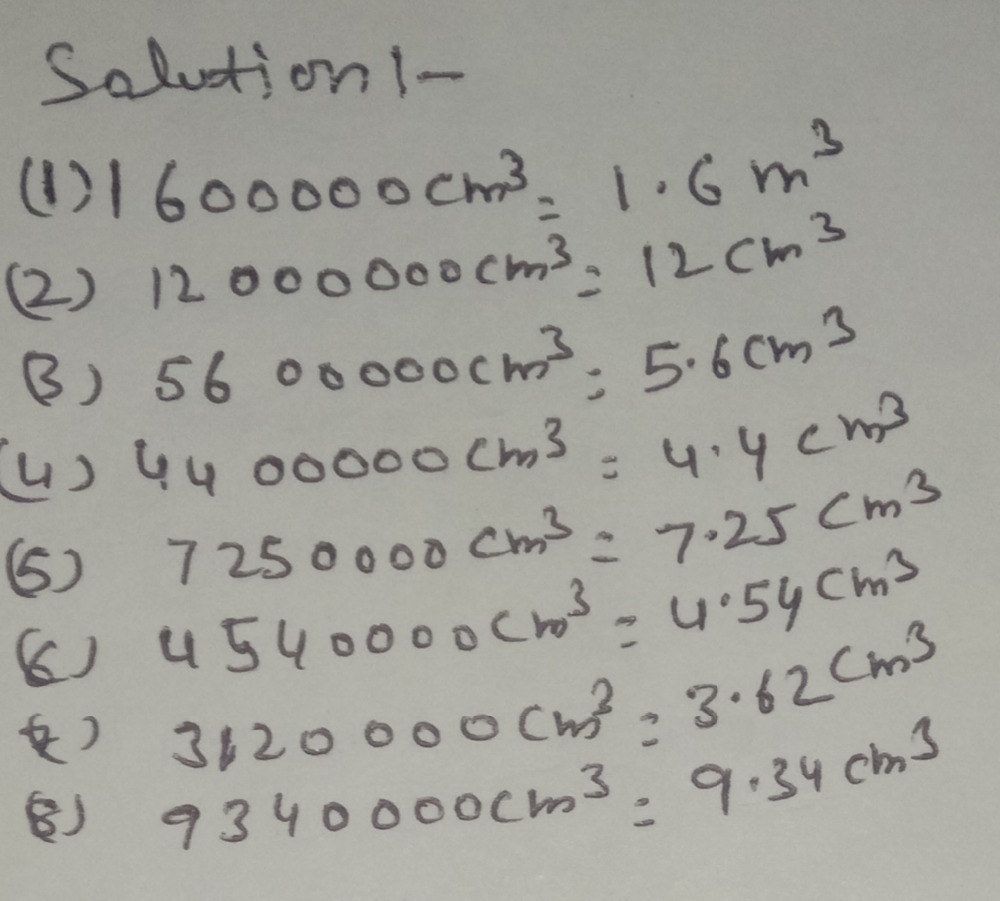 Solution 1-
(1) 1600000cm³ = 1.6 m³
(2) 12000000cm³ = 12 cm³
(3) 5600000cm³ = 5.6 cm³
(4) 4400000cm³ = 4.4 cm³
(5) 7250000cm³ = 7.25 cm³
(6) 4540000cm³ = 4.54 cm³
(7) 3120000cm³ = 3.62 cm³
(8) 9340000cm³ = 9.34 cm³